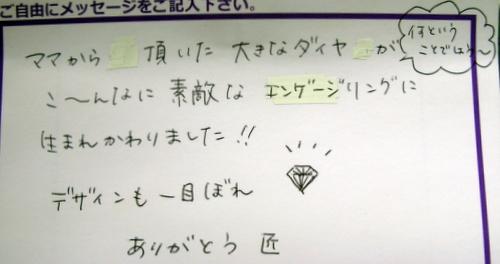 ご自由にメッセージをご記入下さい。
ママから頂いた大きなダイヤが
何という
ことでしょう〜
こ〜んなに素敵なエンゲージリングに
生まれかわりました!!
デザインも一目ぼれ
ありがとう 匠